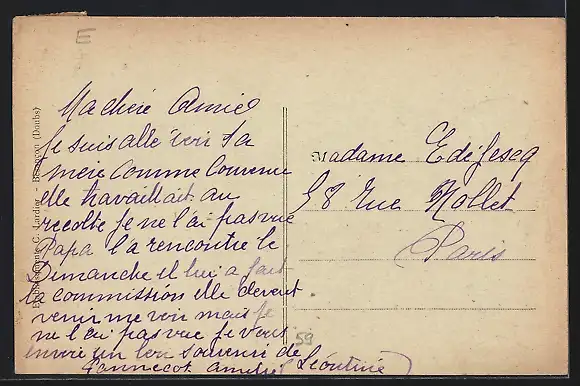 E
Ma chère Amie
Je suis allé voir ta
mère comme convenu
elle travaillait au
recolte je ne l'ai pas vue
Papa l'a rencontre le
Dimanche il lui a fait
la commission elle devait
venir me voir mais je
ne l'ai pas vue je vous
envoie un bon souvenir de
amitiés Léontine
Madame
58 rue Nollet
Paris
59
Etablissements C. Lardier - Besançon (Doubs)